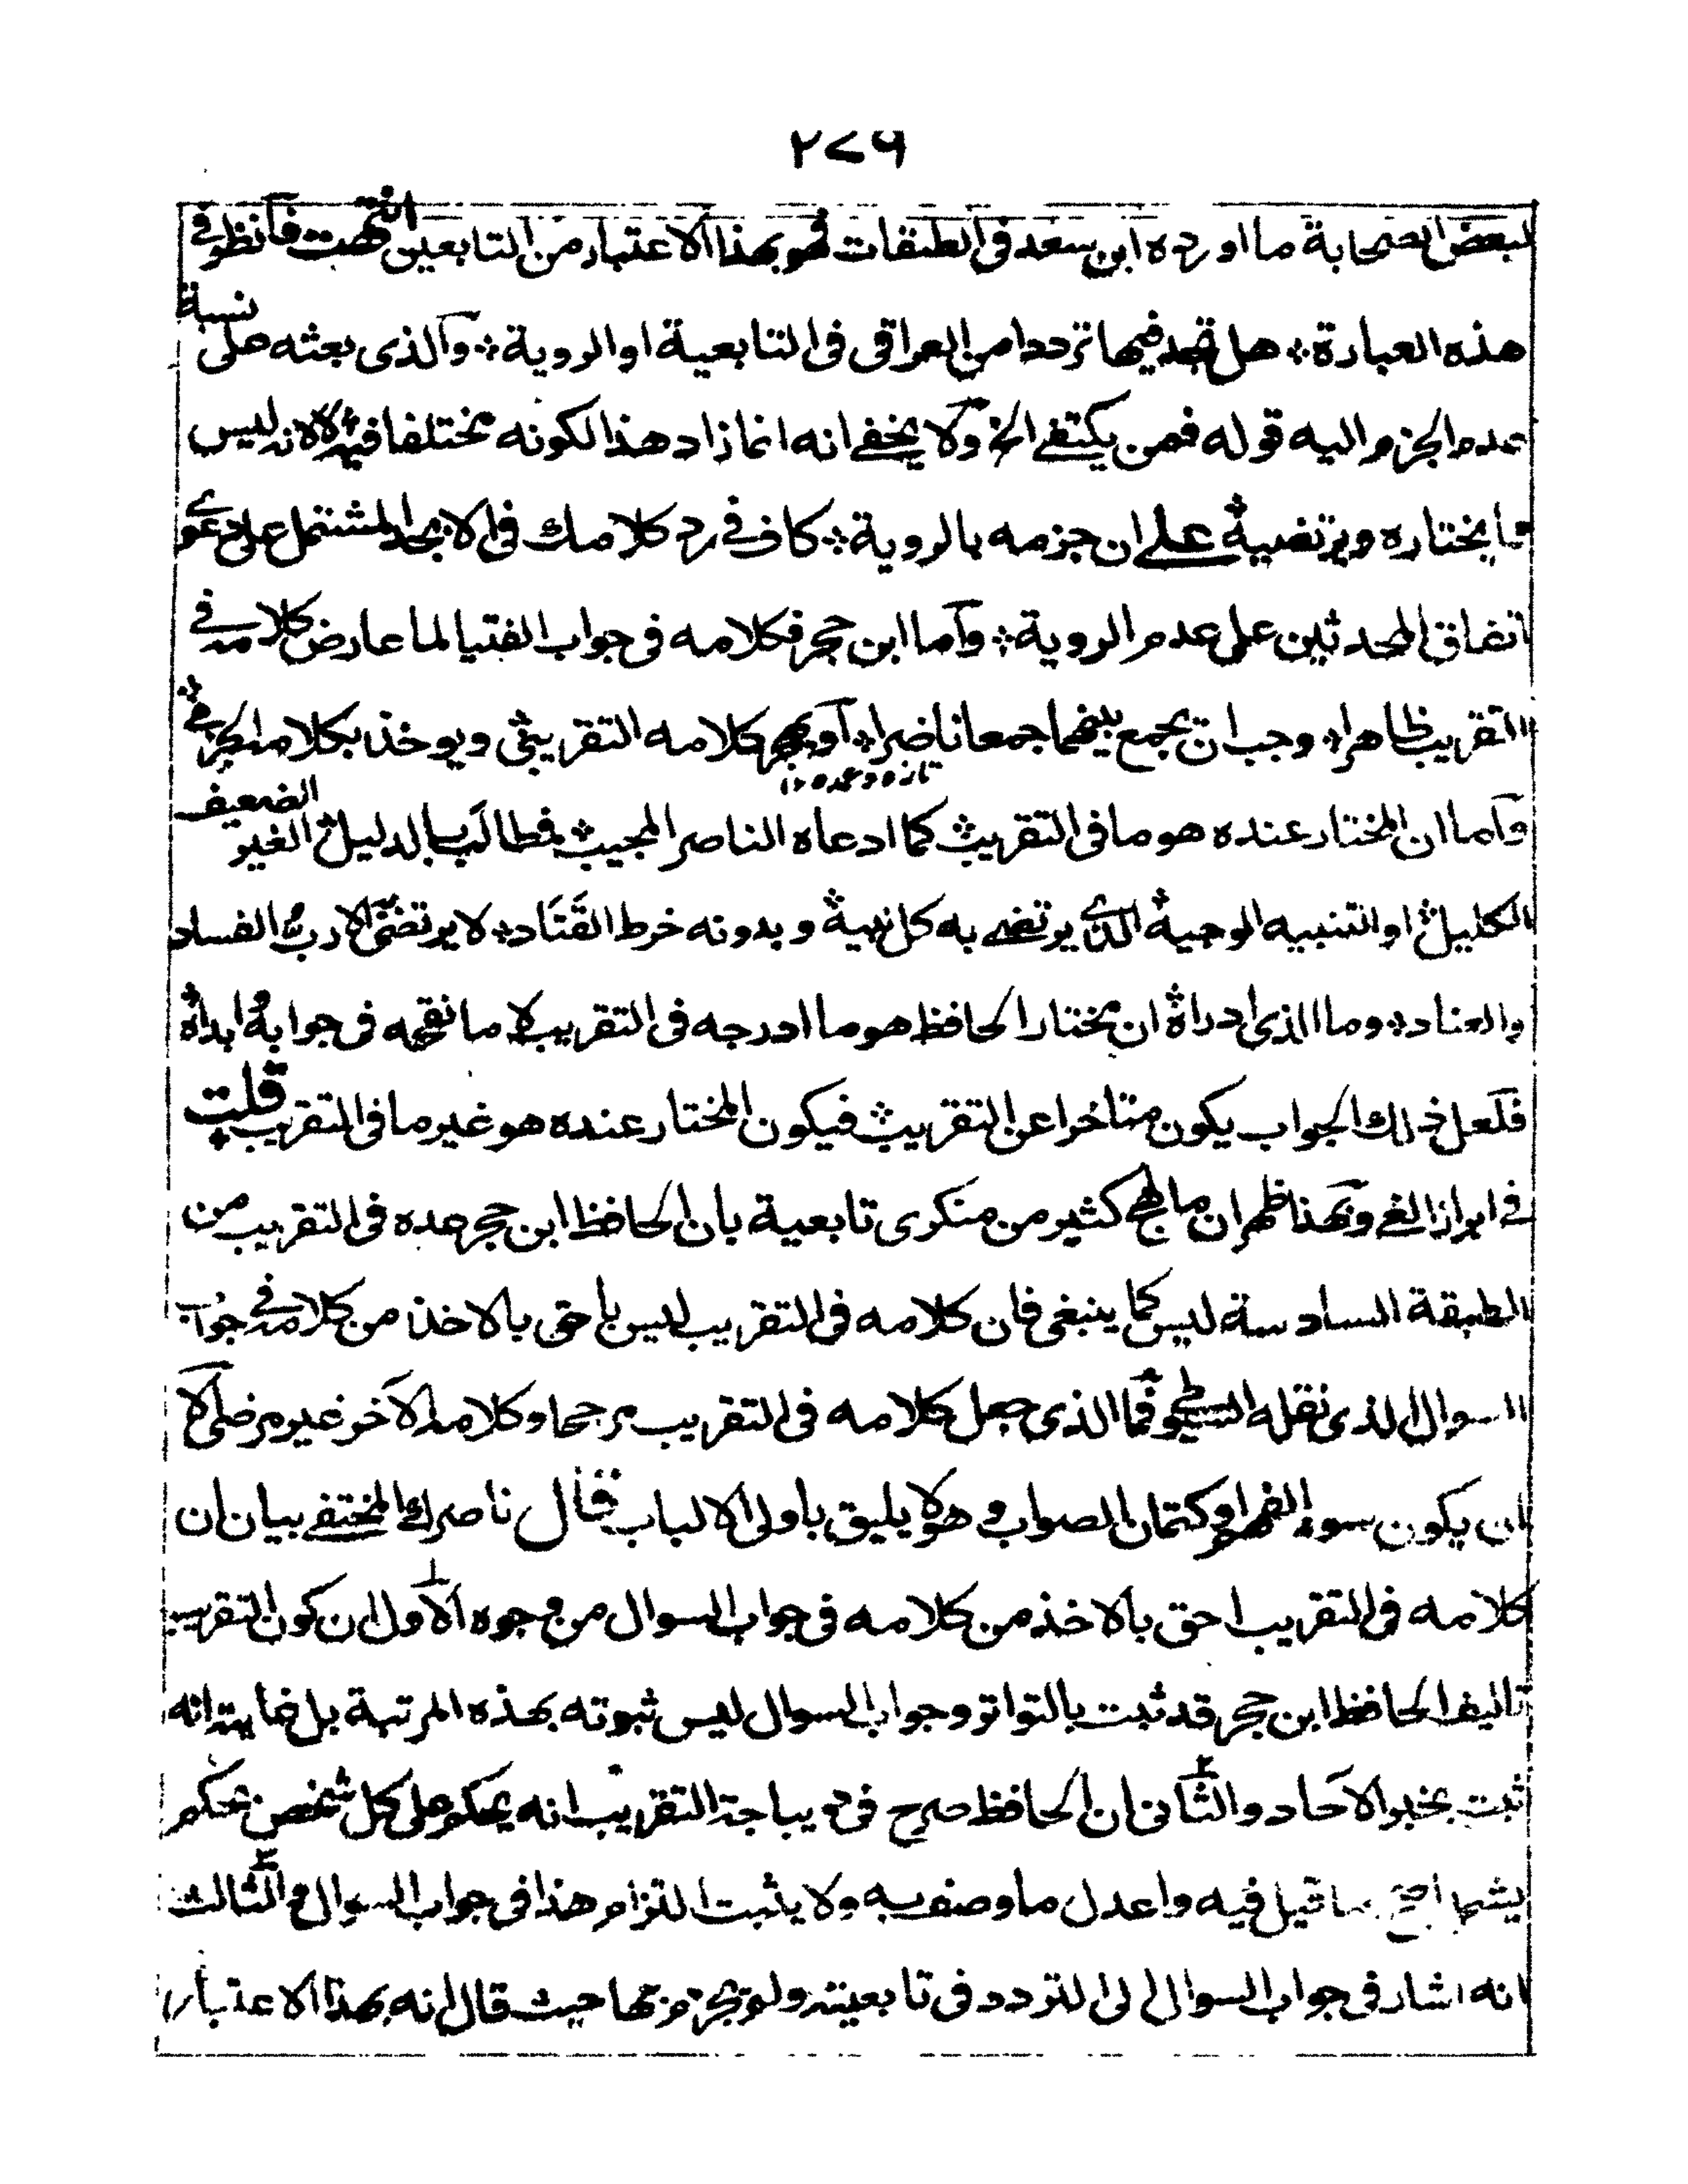 ٢٧٦
لبعض الصحابة ما اورده ابن سعد فى الطبقات فهو بهذا الاعتبار من التابعين انتهت فانظر فى
هذه العبارة هل تجد فيها ترددا من العراقى فى التابعية او الروية والذى بعثه على نسبة
عدم الجزم اليه قوله فمن يكتفے الخ ولا يخفے انه انما زاد هذا لكونه مختلفا فيه لا لانه ليس
ما يختاره ويرتضيه علے ان جزمه بالروية كاف فے رد كلامك فى الابجد المشتمل على دعوے
اتفاق المحدثين على عدم الروية واما ابن حجر فكلامه فى جواب الفتيا لما عارض كلامه فے
التقريب ظاهرا وجب ان يجمع بينهما جمعا ناضرا او يهجر كلامه التقريبى ويوخذ بكلامه
تازه وعمده ١٢
واما ان المختار عنده هو ما فى التقريب كما ادعاه الناصر المجيب فمطالَب بالدليل الغير الضعيف
الكليل او التنبيه الوجيه الذے يرتضے به كل نبيه وبدونه خرط القَتَاد لا يرتضى الا ربُّ الفساد
والعناد وما الذى ادراه ان مختار الحافظ هو ما ادرجه فى التقريب لا ما نقحه فى جوابه ابداه
فلعل ذلك الجواب يكون متاخرا عن التقريب فيكون المختار عنده هو غير ما فى التقريب قلت
فے ابراز الغے وبهذا ظهر ان ما لهج كثير من منكرى تابعية بان الحافظ ابن حجر عده فى التقريب من
الطبقة السادسة ليس كما ينبغى فان كلامه فى التقريب ليس باحق بالاخذ من كلامه فے جواب
السوال الذى نقله السيوطى فما الذى جعل كلامه فى التقريب مرجحا وكلامه الآخر غير مرضى الا
ان يكون سوء الفهم او كتمان الصواب وهو لا يليق باولى الالباب فقال ناصرك المختفے بيان ان
كلامه فى التقريب احق بالاخذ من كلامه فى جواب السوال من وجوه الاول ان كون التقريب
تاليف الحافظ ابن حجر قد ثبت بالتواتر وجواب السوال ليس ثبوته بهذه المرتبة بل غايته انه
ثبت بخبر الآحاد والثانى ان الحافظ صرح فى ديباجة التقريب انه يحكم على كل شخص بحكم
يشمل اصح ما قيل فيه واعدل ما وصف به ولا يثبت التزام هذا فى جواب السوال والثالث
انه اشار فى جواب السوال الى التردد فى تابعيته ولم يجزم بها حيث قال انه بهذا الاعتبار